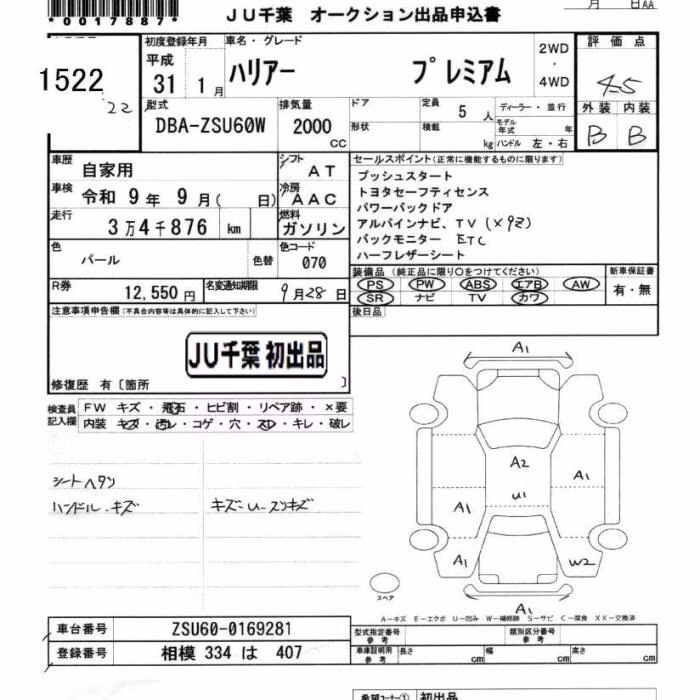 *0017887*
JU千葉 オークション出品申込書
月 日AA
1522
22
初度登録年月
平成
31 1月
車名・グレード
ハリアー プレミアム
2WD
・
4WD
評価点
4.5
外装 内装
B B
型式
DBA-ZSU60W
排気量
2000
CC
ドア
形状
定員
5人
積載
kg
ディーラー・並行
モデル年式 年
ハンドル 左・右
車歴
自家用
シフト
AT
車検
令和 9年 9月( 日)
冷房
AAC
走行
3万4千876 km
燃料
ガソリン
色
パール
色替
色コード
070
R券
12,550円
名変通知期限
9月28日
セールスポイント(正常に機能するものに限ります)
プッシュスタート
トヨタセーフティセンス
パワーバックドア
アルパインナビ、TV(X9Z)
バックモニター ETC
ハーフレザーシート
装備品(純正品に限り○をつけてください)
PS PW ABS エアB AW
SR ナビ TV カワ
新車保証書
有・無
後日品
注意事項申告欄(不具合内容等は具体的に記入して下さい)
JU千葉 初出品
修復歴 有〔箇所 〕
検査員
記入欄
FW キズ・飛石・ヒビ割・リペア跡・×要
内装 キズ・汚レ・コゲ・穴・スレ・キレ・破レ
シートヘタリ
ハンドル・キズ
キズ・U・スリキズ
A1
A2
U1
A1
A1
A1
W2
A1
スペア
A-キズ E-エクボ U-凹み W-補修跡 S-サビ C-腐食 XX-交換済
車台番号
ZSU60-0169281
登録番号
相模 334 は 407
型式指定番号
参考
類別区分番号
参考
車庫証明用
参考
長さ cm
幅 cm
高さ cm
希望コーナー① 初出品